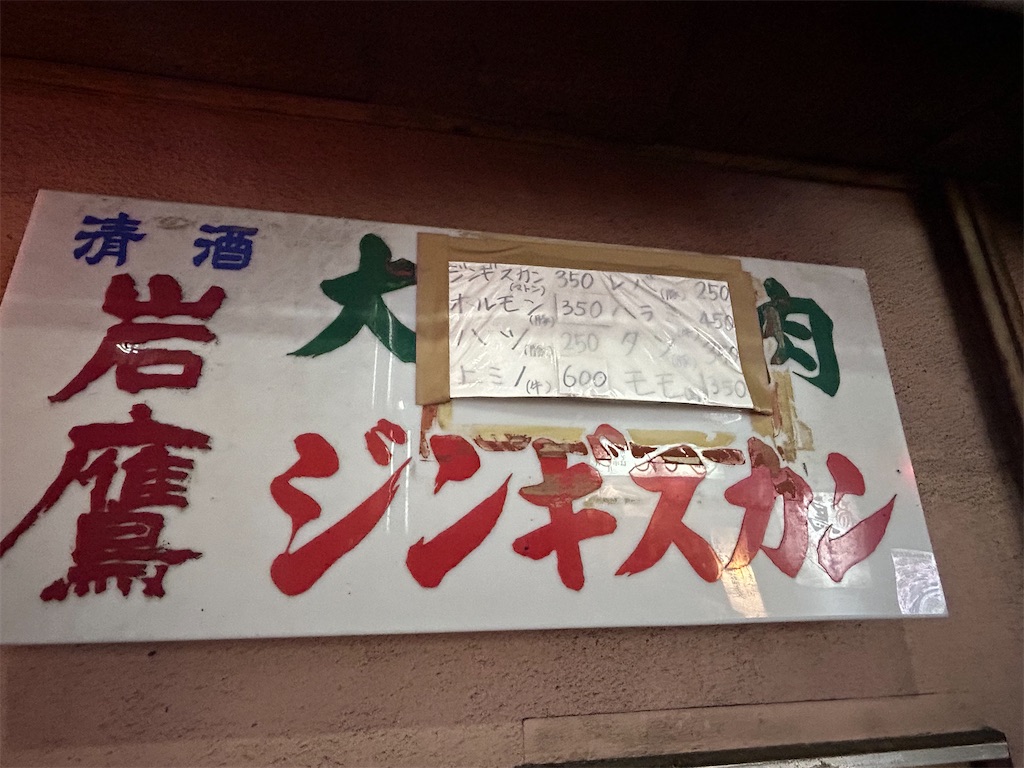 清酒
岩鷹
大
肉
ジンギスカン 350 レバ(豚) 250
(マトン)
ホルモン(豚) 350 ハラミ 450
ハツ 250 タン
上ミノ(牛) 600 モモ 350
ジンギスカン